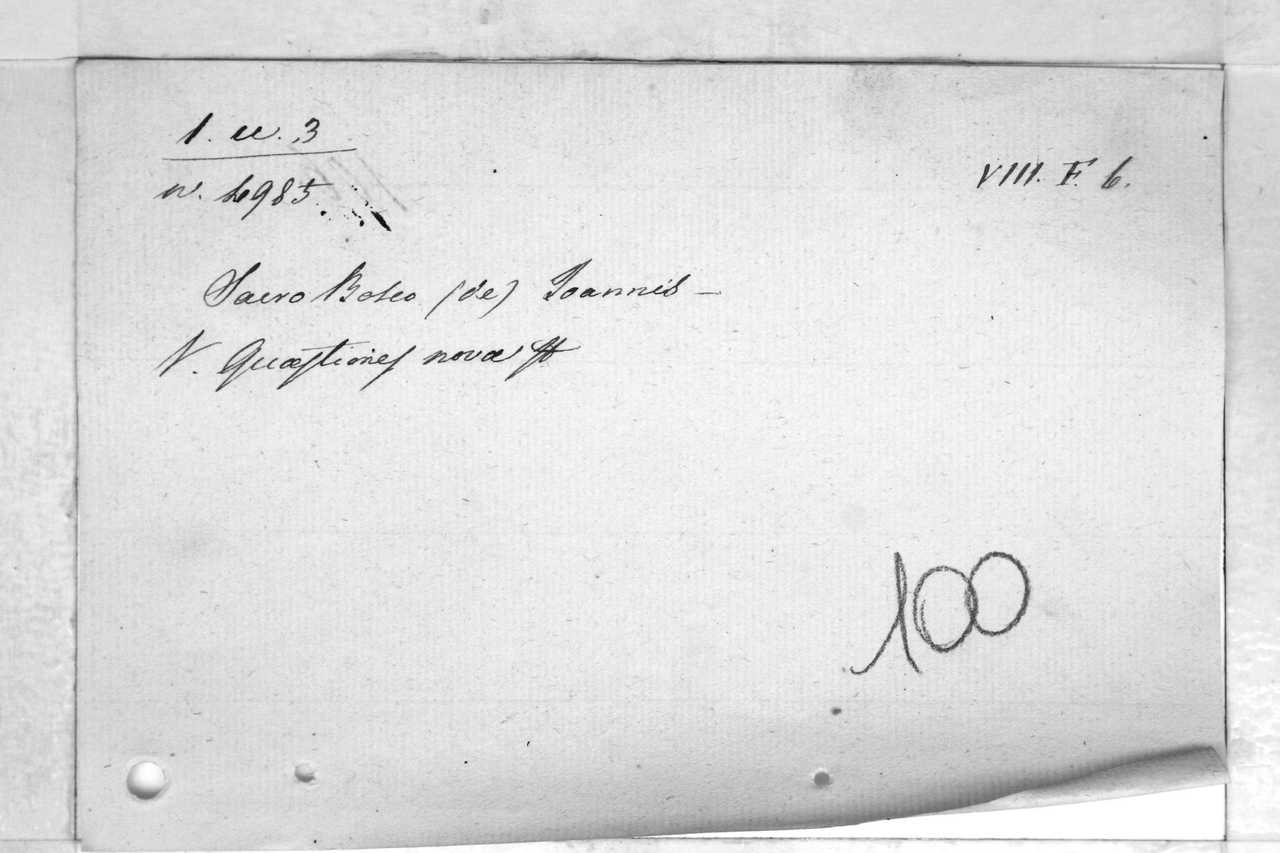 1. u. 3
n. 4985.
VIII. F. 6.
Sacro Bosco (de) Joannis –
V. Quæstiones novæ
100